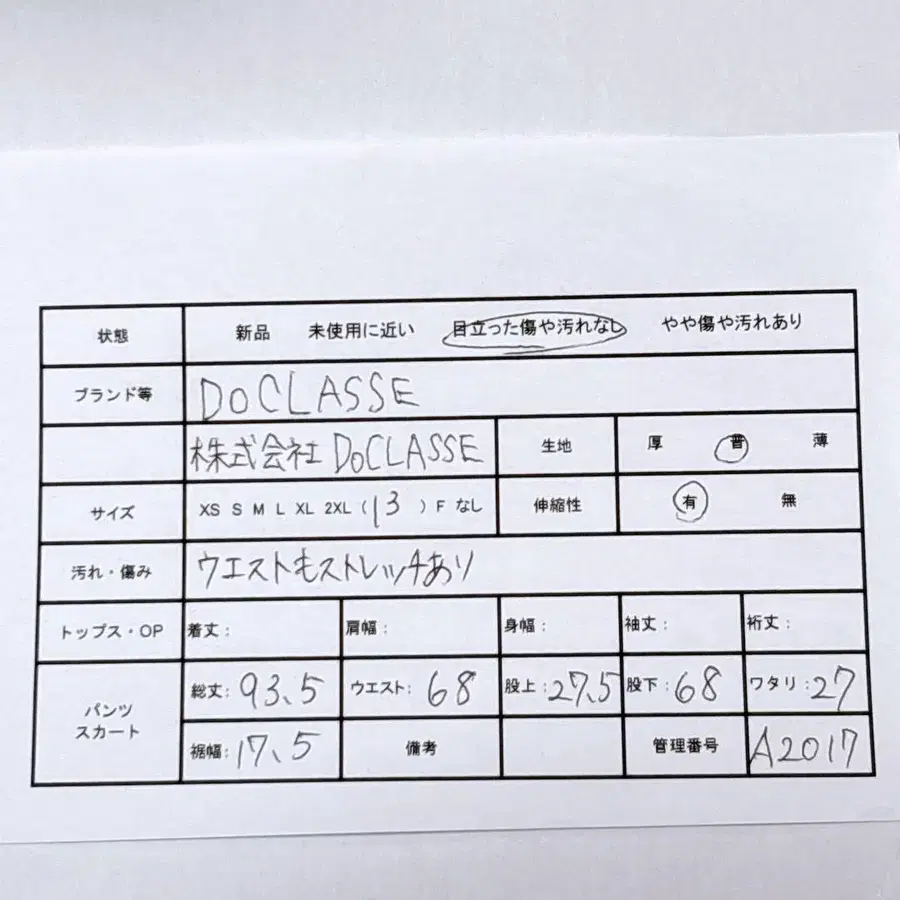 状態 新品 未使用に近い 目立った傷や汚れなし やや傷や汚れあり
ブランド等 DoCLASSE
株式会社 DoCLASSE 生地 厚 普 薄
サイズ XS S M L XL 2XL (13) F なし 伸縮性 有 無
汚れ・傷み ウエストもストレッチあり
トップス・OP 着丈: 肩幅: 身幅: 袖丈: 裄丈:
パンツ スカート 総丈: 93.5 ウエスト: 68 股上: 27.5 股下: 68 ワタリ: 27
裾幅: 17.5 備考 管理番号 A2017